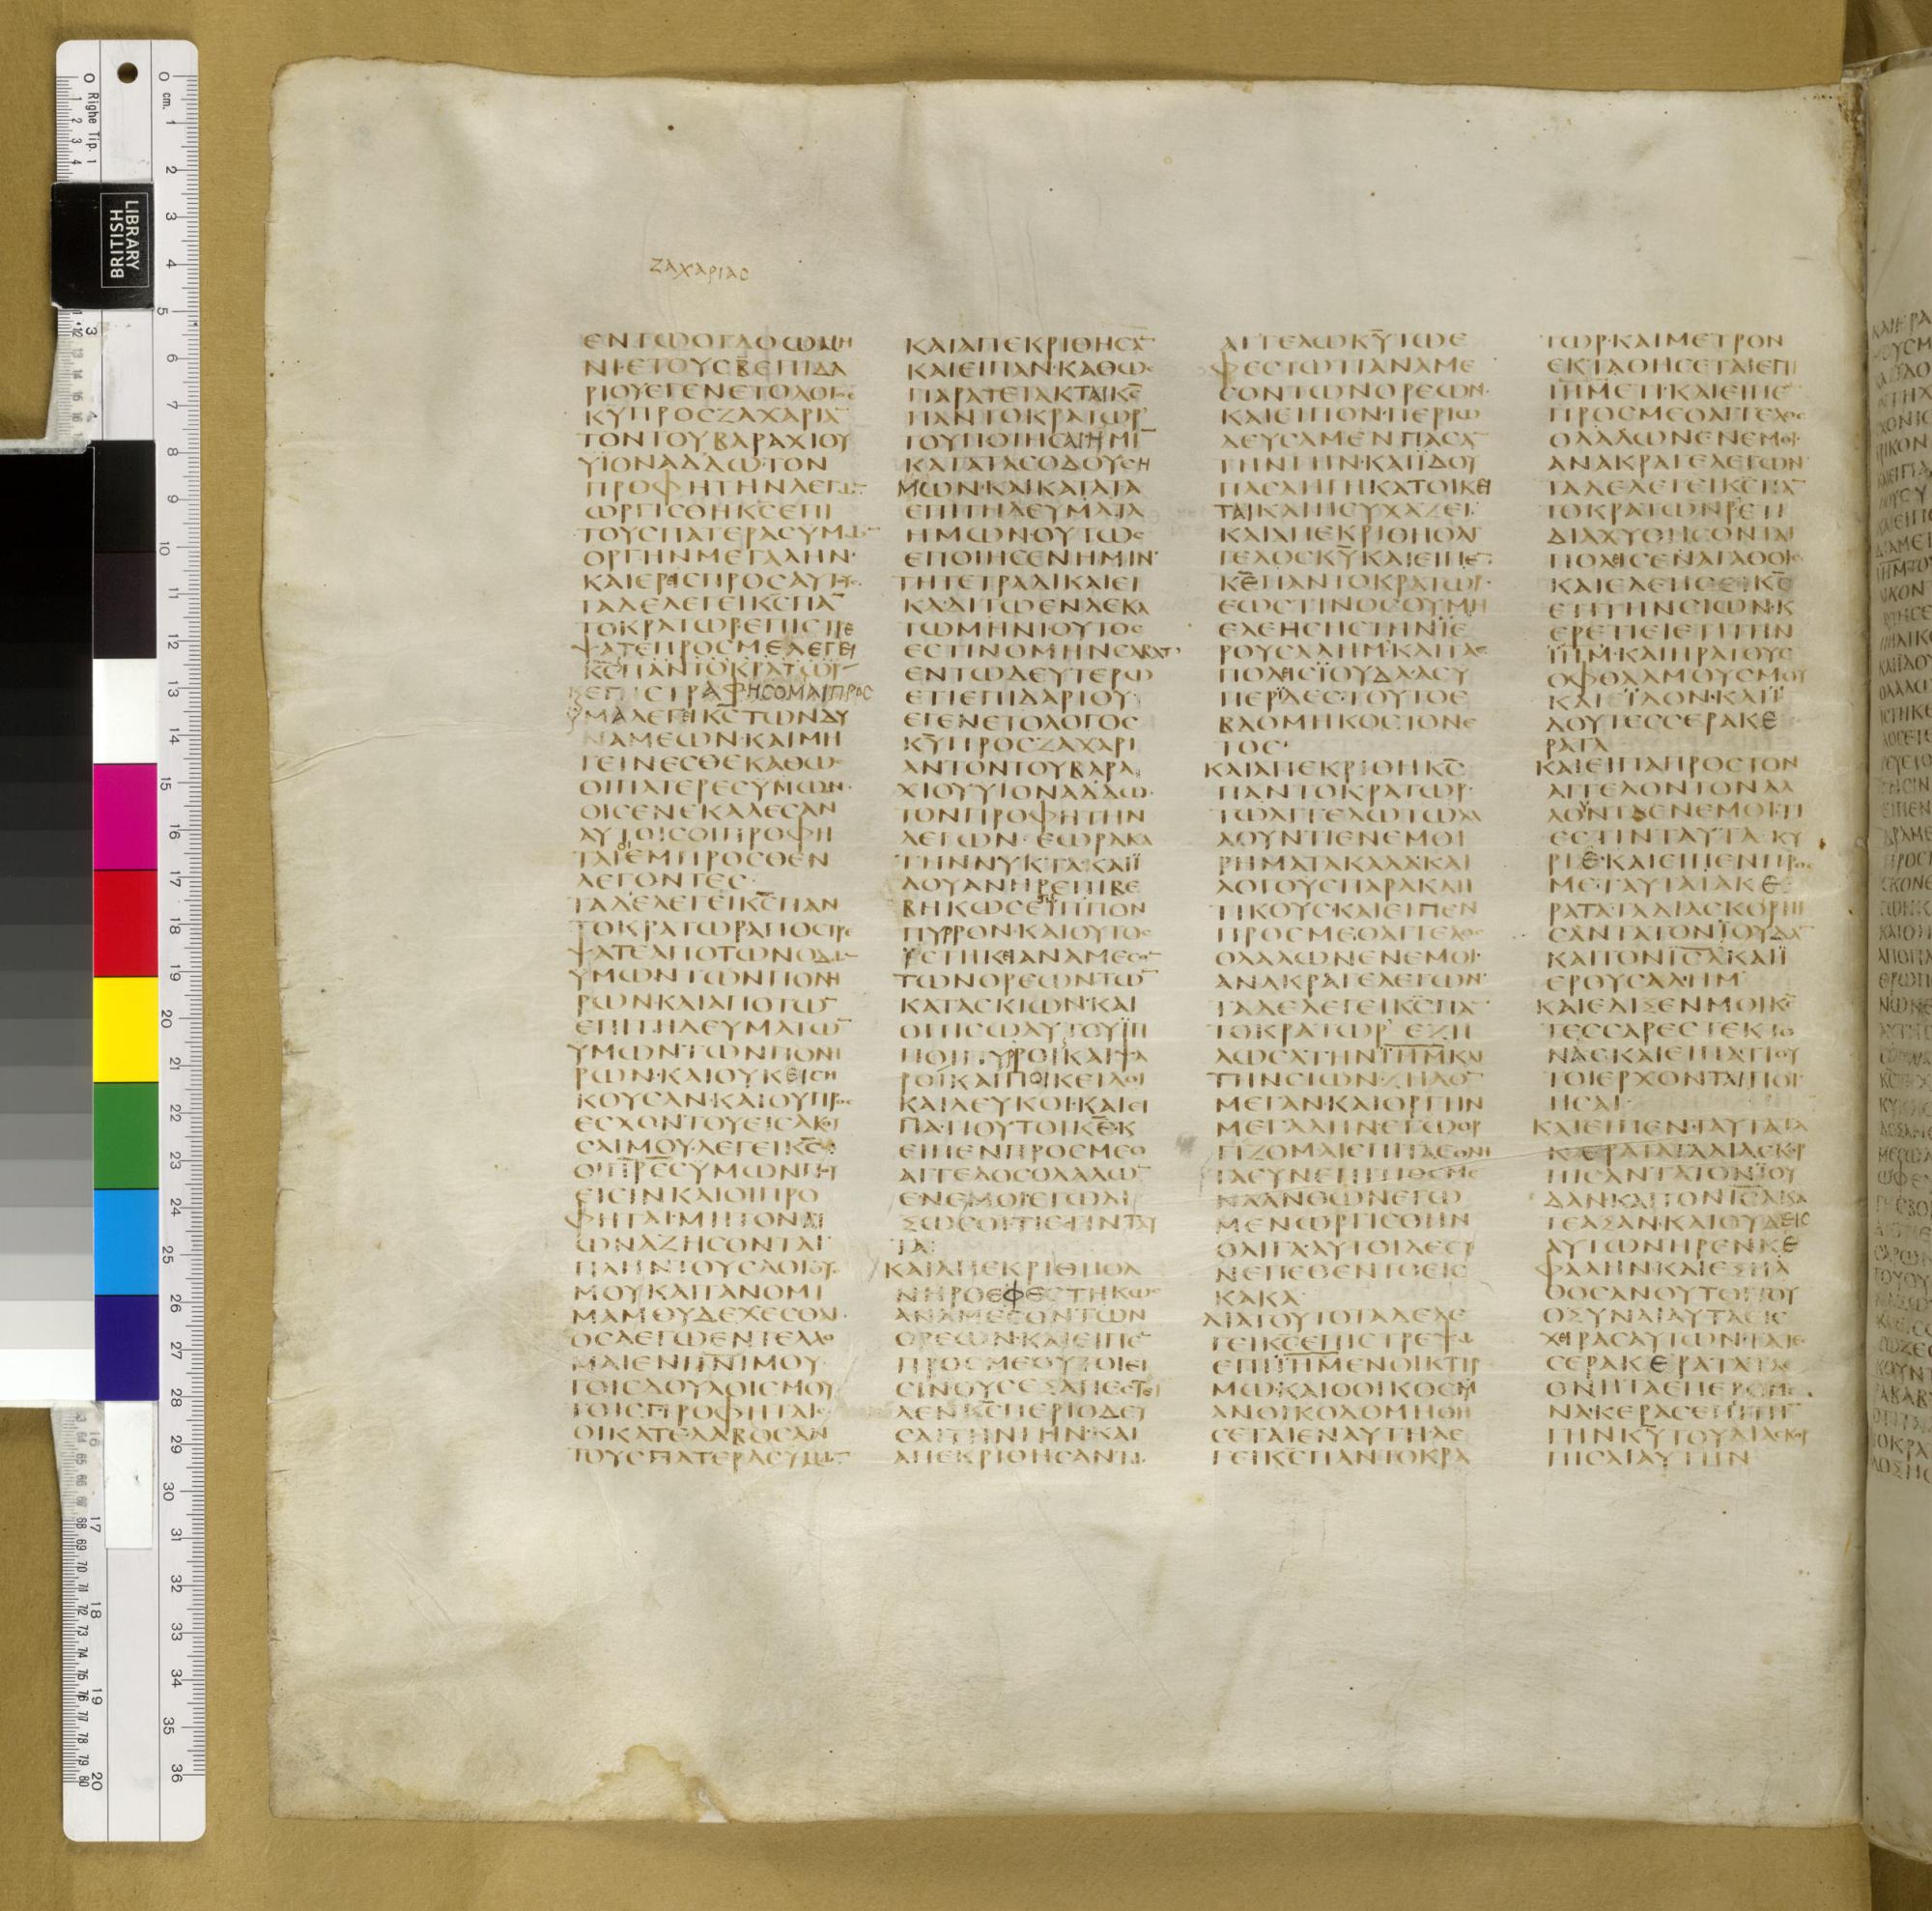 ΖΑΧΑΡΙΑС
ΕΝΤΩΟΓΔΟΩΜΗ
ΝΙ·ΕΤΟΥСΒ̅ΕΠΙΔΑ
ΡΙΟΥΕΓΕΝΕΤΟΛΟΓΟС
Κ̅Υ̅ΠΡΟСΖΑΧΑΡΙΑ̅
ΤΟΝΤΟΥΒΑΡΑΧΙΟΥ
ΥΙΟΝΑΔΔΩ·ΤΟΝ
ΠΡΟΦΗΤΗΝΛΕΓΩ̅
ΩΡΓΙСΘΗΚ̅С̅ΕΠΙ
ΤΟΥСΠΑΤΕΡΑСΥΜΩ̅
ΟΡΓΗΝΜΕΓΑΛΗΝ·
ΚΑΙΕΡΕΙСΠΡΟСΑΥΤΟΥС·
ΤΑΔΕΛΕΓΕΙΚ̅С̅ΠΑ̅
ΤΟΚΡΑΤΩΡΕΠΙСΤΡΕ
ΨΑΤΕΠΡΟСΜΕΛΕΓΕΙ
Κ̅С̅ΠΑΝΤΟΚΡΑΤΩΡ
ΕΠΙСΤΡΑΦΗСΟΜΑΙΠΡΟС
ΥΜΑСΛΕΓΕΙΚ̅С̅ΤΩΝΔΥ
ΝΑΜΕΩΝ·ΚΑΙΜΗ
ΓΕΙΝΕСΘΕΚΑΘΩС
ΟΙΠΑΤΕΡΕСΥΜΩΝ·
ΟΙСΕΝΕΚΑΛΕСΑΝ
ΑΥΤΟΙСΟΙΠΡΟΦΗ
ΤΑΙΕΜΠΡΟСΘΕΝ
ΛΕΓΟΝΤΕС·
ΤΑΔΕΛΕΓΕΙΚ̅С̅ΠΑΝ
ΤΟΚΡΑΤΩΡΑΠΟСΤΡΕ
ΨΑΤΕΑΠΟΤΩΝΟΔΩ̅
ΥΜΩΝΤΩΝΠΟΝΗ
ΡΩΝ·ΚΑΙΑΠΟΤΩ̅
ΕΠΙΤΗΔΕΥΜΑΤΩ̅
ΥΜΩΝΤΩΝΠΟΝΗ
ΡΩΝ·ΚΑΙΟΥΚΕΙСΗ
ΚΟΥСΑΝ·ΚΑΙΟΥΠΡΟС
ΕСΧΟΝΤΟΥΕΙСΑΚΟΥ
СΑΙΜΟΥ·ΛΕΓΕΙΚ̅С̅·
ΟΙΠ̅Ρ̅Ε̅С̅ΥΜΩΝΠΟΥ
ΕΙСΙΝΚΑΙΟΙΠΡΟ
ΦΗΤΑΙ·ΜΗΤΟΝΑΙ
ΩΝΑΖΗСΟΝΤΑΙ·
ΠΛΗΝΤΟΥСΛΟΓΟΥС
ΜΟΥΚΑΙΤΑΝΟΜΙ
ΜΑΜΟΥΔΕΧΕСΘΑΙ·
ΟСΑΕΓΩΕΝΤΕΛΛΟ
ΜΑΙΕΝΠ̅Ν̅Ι̅ΜΟΥ
ΤΟΙСΔΟΥΛΟΙСΜΟΥ
ΤΟΙСΠΡΟΦΗΤΑΙС
ΟΙΚΑΤΕΛΑΒΟСΑΝ
ΤΟΥСΠΑΤΕΡΑСΥΜΩ̅
ΚΑΙΑΠΕΚΡΙΘΗСΑ̅
ΚΑΙΕΙΠΑΝ·ΚΑΘΩС
ΠΑΡΑΤΕΤΑΚΤΑΙΚ̅С̅
ΠΑΝΤΟΚΡΑΤΩΡ
ΤΟΥΠΟΙΗСΑΙΗΜΙ̅
ΚΑΤΑΤΑСΟΔΟΥСΗ
ΜΩΝ·ΚΑΙΚΑΤΑΤΑ
ΕΠΙΤΗΔΕΥΜΑΤΑ
ΗΜΩΝ·ΟΥΤΩС
ΕΠΟΙΗСΕΝΗΜΙΝ·
ΤΗΤΕΤΡΑΔΙΚΑΙΕΙ
ΚΑΔΙΤΩΕΝΔΕΚΑ
ΤΩΜΗΝΙΟΥΤΟС
ΕСΤΙΝΟΜΗΝСΑΒΑΤ·
ΕΝΤΩΔΕΥΤΕΡΩ
ΕΤΙΕΠΙΔΑΡΙΟΥ·
ΕΓΕΝΕΤΟΛΟΓΟС
Κ̅Υ̅ΠΡΟСΖΑΧΑΡΙ
ΑΝΤΟΝΤΟΥΒΑΡΑ
ΧΙΟΥΥΙΟΝΑΔΔΩ·
ΤΟΝΠΡΟΦΗΤΗΝ
ΛΕΓΩΝ·ΕΩΡΑΚΑ
ΤΗΝΝΥΚΤΑ·ΚΑΙΪ
ΔΟΥΑΝΗΡΕΠΙΒΕ
ΒΗΚΩСΕΠΙΠΠΟΝ
ΠΥΡΡΟΝ·ΚΑΙΟΥΤΟС
ΙСΤΗΚΕΙΑΝΑΜΕСΟ̅
ΤΩΝΟΡΕΩΝΤΩ̅
ΚΑΤΑСΚΙΩΝ·ΚΑΙ
ΟΠΙСΩΑΥΤΟΥΪΠ
ΠΟΙΠΥΡΡΟΙΚΑΙΨΑ
ΡΟΙΚΑΙΠΟΙΚΕΙΛΟΙ
ΚΑΙΛΕΥΚΟΙ·ΚΑΙΕΙ
ΠΑ·ΤΙΟΥΤΟΙΚ̅Ε̅·Κ
ΕΙΠΕΝΠΡΟСΜΕΟ
ΑΓΓΕΛΟСΟΛΑΛΩ̅
ΕΝΕΜΟΙ·ΕΓΩΔΙ
ΞΩСΟΙΤΙΕСΤΙΝΤΑΥ
ΤΑ·
ΚΑΙΑΠΕΚΡΙΘΗΟΑ
ΝΗΡΟΕΦΕСΤΗΚΩС
ΑΝΑΜΕСΟΝΤΩΝ
ΟΡΕΩΝ·ΚΑΙΕΙΠΕ̅
ΠΡΟСΜΕΟΥΤΟΙΕΙ
СΙΝΟΥСΕΞΑΠΕСΤΑΛ
ΛΕΝΚ̅С̅ΠΕΡΙΟΔΕΥ
СΑΙΤΗΝΓΗΝ·ΚΑΙ
ΑΠΕΚΡΙΘΗСΑΝΤΩ
ΑΓΓΕΛΩΚ̅Υ̅ΤΩΕ
ΦΕСΤΩΤΙΑΝΑΜΕ
СΟΝΤΩΝΟΡΕΩΝ·
ΚΑΙΕΙΠΟΝ·ΠΕΡΙΩ
ΔΕΥСΑΜΕΝΠΑСΑ̅
ΤΗΝΓΗΝ·ΚΑΙΪΔΟΥ
ΠΑСΑΗΓΗΚΑΤΟΙΚΕΙ
ΤΑΙΚΑΙΗСΥΧΑΖΕΙ·
ΚΑΙΑΠΕΚΡΙΘΗΟΑΓ
ΓΕΛΟСΚ̅Υ̅ΚΑΙΕΙΠΕ̅
Κ̅Ε̅ΠΑΝΤΟΚΡΑΤΩΡ·
ΕΩСΤΙΝΟСΟΥΜΗ
ΕΛΕΗСΗСΤΗΝΪΕ
ΡΟΥСΑΛΗΜ·ΚΑΙΤΑС
ΠΟΛΕΙСΪΟΥΔΑ·ΑСΥ
ΠΕΡΪΔΕС·ΤΟΥΤΟΕ
ΒΔΟΜΗΚΟСΤΟΝΕ
ΤΟС·
ΚΑΙΑΠΕΚΡΙΘΗΚ̅С̅
ΠΑΝΤΟΚΡΑΤΩΡ·
ΤΩΑΓΓΕΛΩΤΩΛΑ
ΛΟΥΝΤΙΕΝΕΜΟΙ
ΡΗΜΑΤΑΚΑΛΑΚΑΙ
ΛΟΓΟΥСΠΑΡΑΚΛΗ
ΤΙΚΟΥС·ΚΑΙΕΙΠΕΝ
ΠΡΟСΜΕΟΑΓΓΕΛΟС
ΟΛΑΛΩΝΕΝΕΜΟΙ·
ΑΝΑΚΡΑΓΕΛΕΓΩΝ·
ΤΑΔΕΛΕΓΕΙΚ̅С̅ΠΑ̅
ΤΟΚΡΑΤΩΡ·ΕΖΗ
ΛΩСΑΤΗΝΪ̅Η̅Μ̅ΚΑΙ
ΤΗΝСΙΩΝ·ΖΗΛΟ̅
ΜΕΓΑΝ·ΚΑΙΟΡΓΗΝ
ΜΕΓΑΛΗΝΕΓΩΟΡ
ΓΙΖΟΜΑΙΕΠΙΤΑΕΘΝΗ
ΤΑСΥΝΕΠΙΤΙΘΕΜΕ
ΝΑΑΝΘΩΝΕΓΩ
ΜΕΝΩΡΓΙСΘΗΝ
ΟΛΙΓΑ·ΑΥΤΟΙΔΕСΥ
ΝΕΠΕΘΕΝΤΟΕΙС
ΚΑΚΑ·
ΔΙΑΤΟΥΤΟΤΑΔΕΛΕ
ΓΕΙΚ̅С̅ΕΠΙСΤΡΕΨΩ
ΕΠΙΪ̅Η̅Μ̅ΕΝΟΙΚΤΙΡ
ΜΩ·ΚΑΙΟΟΙΚΟСΜΟΥ
ΑΝΟΙΚΟΔΟΜΗΘΗ
СΕΤΑΙΕΝΑΥΤΗΛΕ
ΓΕΙΚ̅С̅ΠΑΝΤΟΚΡΑ
ΤΩΡ·ΚΑΙΜΕΤΡΟΝ
ΕΚΤΑΘΗСΕΤΑΙΕΠΙ
Ϊ̅Η̅Μ̅ΕΤΙ·ΚΑΙΕΙΠΕ̅
ΠΡΟСΜΕΟΑΓΓΕΛΟС
ΟΛΑΛΩΝΕΝΕΜΟΙ·
ΑΝΑΚΡΑΓΕΛΕΓΩΝ·
ΤΑΔΕΛΕΓΕΙΚ̅С̅ΠΑ̅
ΤΟΚΡΑΤΩΡ·ΕΤΙ
ΔΙΑΧΥΘΗСΟΝΤΑΙ
ΠΟΛΕΙСΕΝΑΓΑΘΟΙС
ΚΑΙΕΛΕΗСΕΙΚ̅С̅
ΕΤΙΤΗΝСΙΩΝ·Κ
ΕΡΕΤΙΕΙΕΤΙΤΗΝ
Ϊ̅Η̅Μ̅·ΚΑΙΗΡΑΤΟΥС
ΟΦΘΑΛΜΟΥСΜΟΥ
ΚΑΙΪΔΟΝ·ΚΑΙΪ
ΔΟΥΤΕССΕΡΑΚΕ
ΡΑΤΑ
ΚΑΙΕΙΠΑΠΡΟСΤΟΝ
ΑΓΓΕΛΟΝΤΟΝΛΑ
ΛΟΥΝΤΑΕΝΕΜΟΙ·ΤΙ
ΕСΤΙΝΤΑΥΤΑ·ΚΥ
ΡΙΕ·ΚΑΙΕΙΠΕΝΠΡΟС
ΜΕ·ΤΑΥΤΑΤΑΚΕ
ΡΑΤΑ·ΤΑΔΙΑСΚΟΡΠΙ
СΑΝΤΑΤΟΝΪΟΥΔΑ̅
ΚΑΙΤΟΝΪ̅С̅Λ̅ΚΑΙΪ
ΕΡΟΥСΑΛΗΜ
ΚΑΙΕΔΙΞΕΝΜΟΙΚ̅С̅
ΤΕССΑΡΕСΤΕΚΤΟ
ΝΑСΚΑΙΕΙΠΑΤΙΟΥ
ΤΟΙΕΡΧΟΝΤΑΙΠΟΙ
ΗСΑΙ·
ΚΑΙΕΙΠΕΝ·ΤΑΥΤΑΤΑ
ΚΕΡΑΤΑΤΑΔΙΑСΚΟΡ
ΠΙСΑΝΤΑΤΟΝΪΟΥ
ΔΑΝ·ΚΑΙΤΟΝΪ̅С̅Λ̅ΚΑ
ΤΕΑΞΑΝ·ΚΑΙΟΥΔΕΙС
ΑΥΤΩΝΗΡΕΝΚΕ
ΦΑΛΗΝ·ΚΑΙΕΞΗΛ
ΘΟСΑΝΟΥΤΟΙΤΟΥ
ΟΞΥΝΑΙΑΥΤΑΕΙС
ΧΕΙΡΑСΑΥΤΩΝ·ΤΑΤΕС
СΕΡΑΚΕΡΑΤΑΤΑ
ΘΝΗΤΑΕΠΕΡΟΜΕ
ΝΑ·ΚΕΡΑСΕΠΙΤΗ̅
ΓΗΝΚ̅Υ̅ΤΟΥΔΙΑСΚΟΡ
ΠΙСΑΙΑΥΤΗΝ
BRITISH
LIBRARY